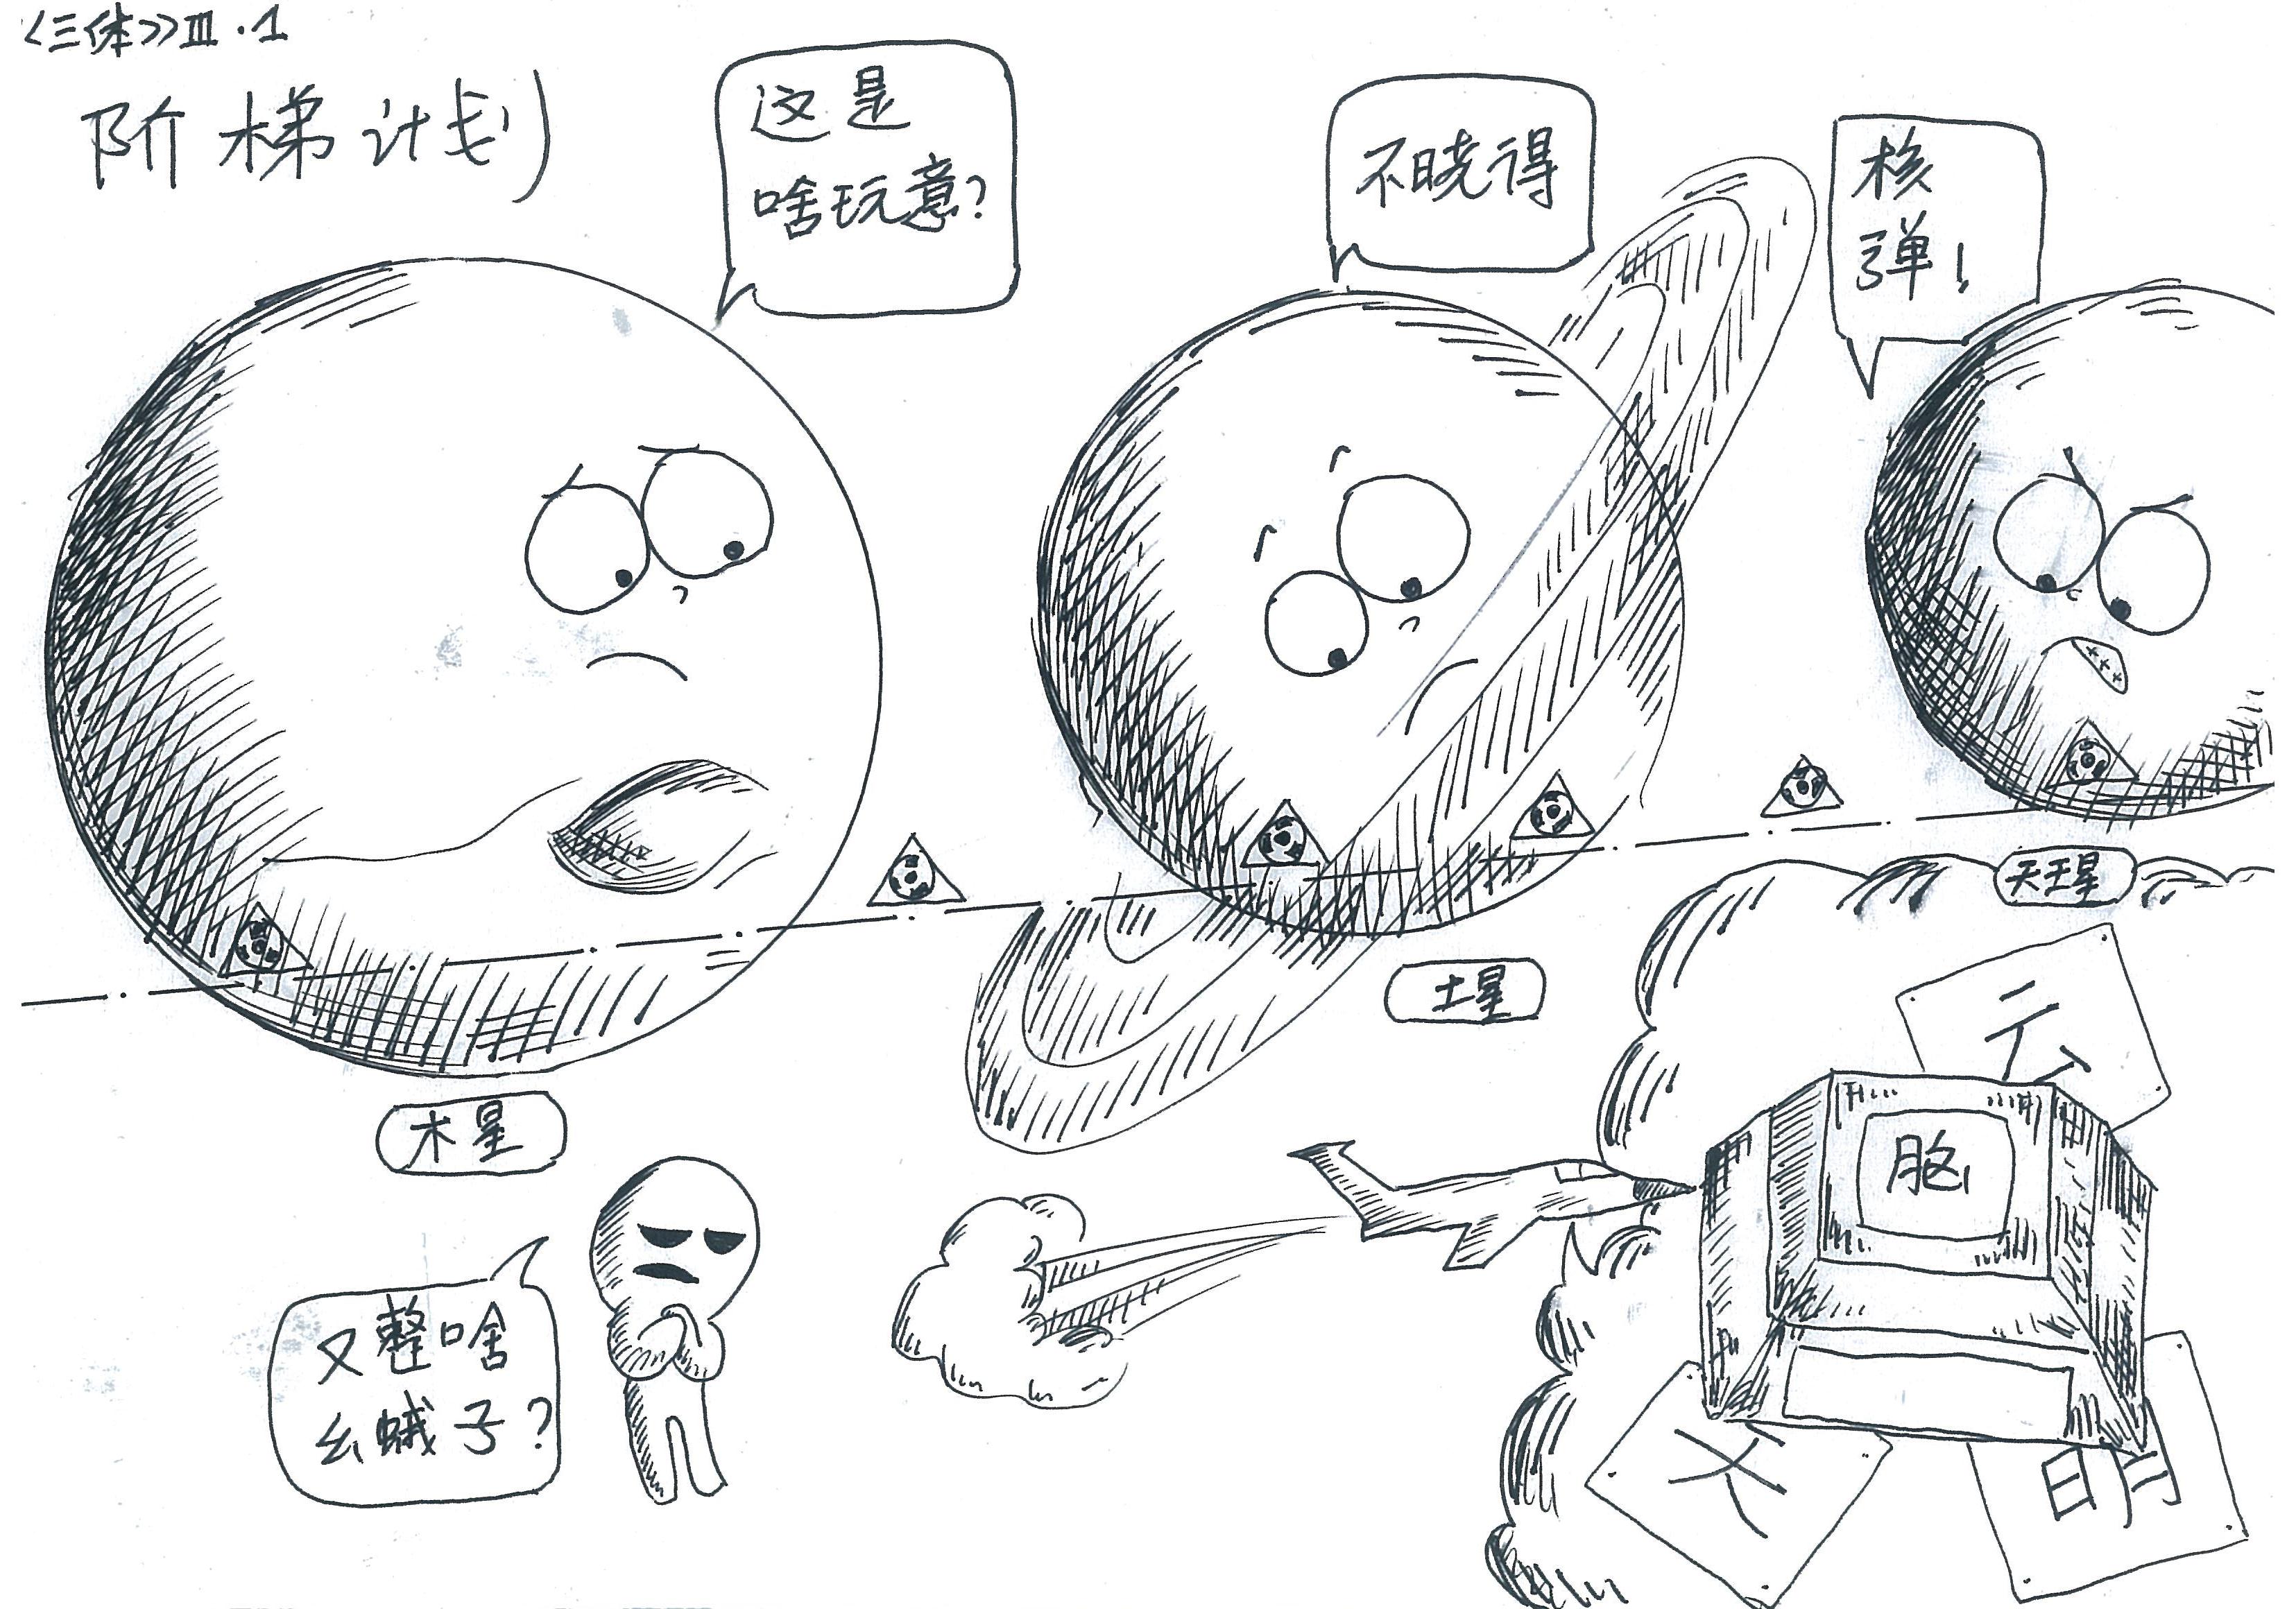 《三体》III.1
阶梯计划
这是
啥玩意?
不晓得
核
弹!
木星
土星
天王星
又整啥
幺蛾子?
云
脑
天
明